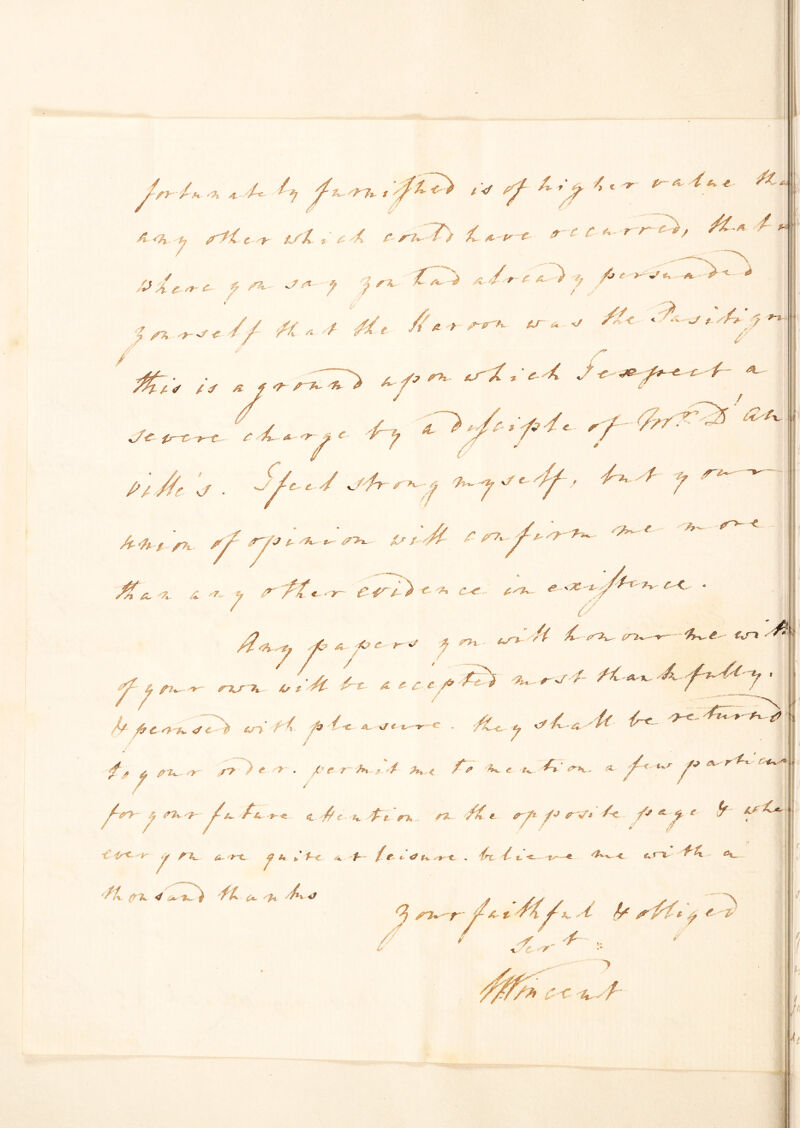 fortunately furnished is of higher value tha
any other which could have occurred, that
where you say you had already persuaded
yourself that the Karoon was the Pasitigri
this is a ground upon which I expect a
severe charge by a disciple of Mr. D'an
ville's. I feel strong myself, but your
union of opinion will confirm me more
than any other evidence in existence.
Any papers you will honour me with
of your own will be accepted most thankfully,
& perused with pleasure. they shall be returned
to your order. permit me to mention a few particu
for your future attention on the opposite page & whe
ever you are quite at leisure. believe me with a
thousand thanks
your faithful & obliged
Sert:
WVincent